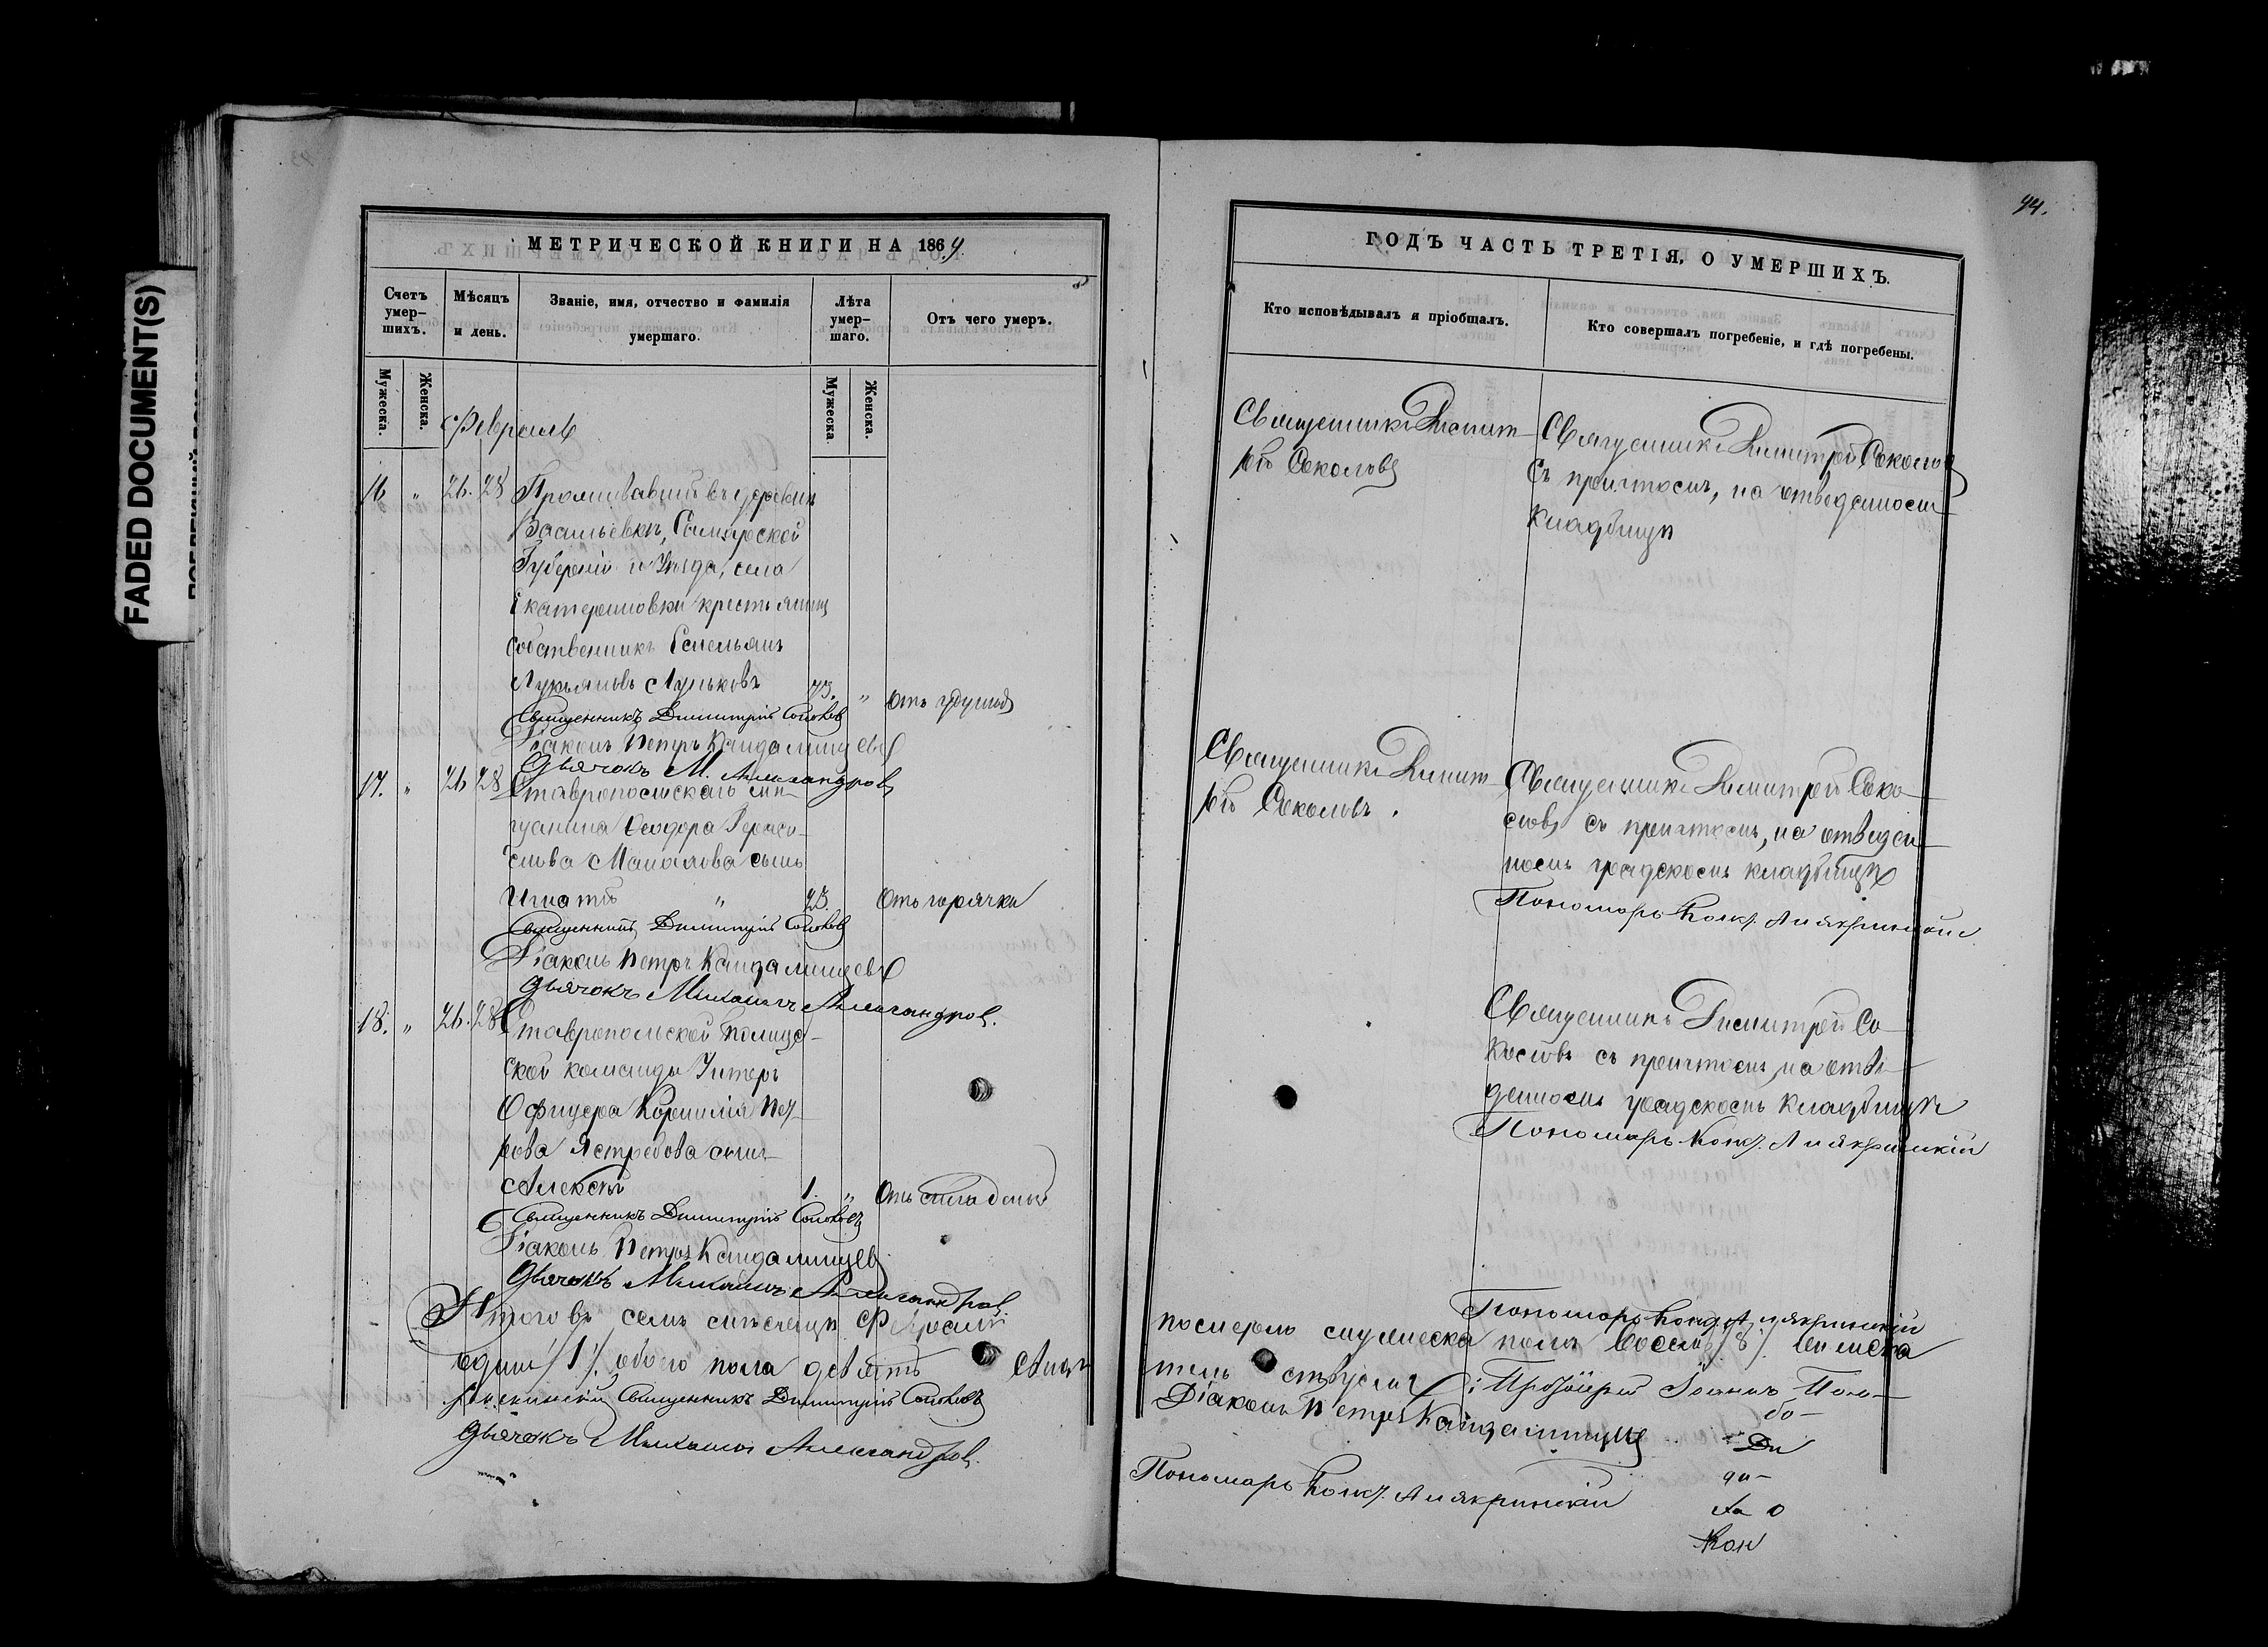 FADED DOCUMENT(S)
94.
МЕТРИЧЕСКОЙ КНИГИ НА 1869
Счетъ умер–шихъ.
Мѣсяцъ и день.
Званіе, имя, отчество и фамилія умершаго.
Лѣта умер–шаго.
Отъ чего умеръ.
Мужеска.
Женска.
Мужеска.
Женска.
Февраль
16 " 26. 28 Проживавшій въ деревни
Васильевкѣ, Самарской
Губерніи и Уѣзда, села
Екатериновки крестьянинъ
собственникъ Емельянъ
Лукьяновъ 73. " Отъ удушья
Священникъ Димитрій Соколовъ
Діаконъ Петръ Кандалинцевъ
Дьячокъ М. Александровъ
17. " 26 28 Ставропольскаго мѣ–
щанина Ѳеодора Гераси–
мова сынъ
Игнатій " 23. Отъ горячки
Священникъ Димитрій Соколовъ
Діаконъ Петръ Кандалинцевъ
Дьячокъ Михаилъ Александровъ.
18. " 26. 28 Ставропольской Полицей–
ской команды Унтеръ
Офицера Корнилія Пет–
рова Ястребова сынъ
Алексѣй 1. " Отъ слабости
Священникъ Димитрій Соколовъ
Діаконъ Петръ Кандалинцевъ
Дьячокъ Михаилъ Александровъ.
Итого въ семъ мѣсяцѣ Февралѣ
единъ /1/. обоего пола девять
Священникъ Димитрій Соколовъ
Дьячокъ Михаилъ Александровъ.
ГОДЪ ЧАСТЬ ТРЕТІЯ, О УМЕРШИХЪ.
Кто исповѣдывалъ и пріобщалъ.
Кто совершалъ погребеніе, и гдѣ погребены.
Священникъ Димит–
рій Соколовъ
Священникъ Димитрій Соколовъ
съ причтомъ, на отведенномъ
кладбищѣ
Священникъ Димит–
рій Соколовъ.
Священникъ Димитрій Соко–
ловъ съ причтомъ, на отведен–
номъ градскомъ кладбищѣ
Пономарь
Священникъ Димитрій Со–
коловъ съ причтомъ, на отве–
денномъ градскомъ кладбищѣ
Пономарь
Пономарь
померло мужеска пола восемь /8/. женска
Протоіерей Іоаннъ
Діаконъ Петръ Кандалинцевъ
Пономарь